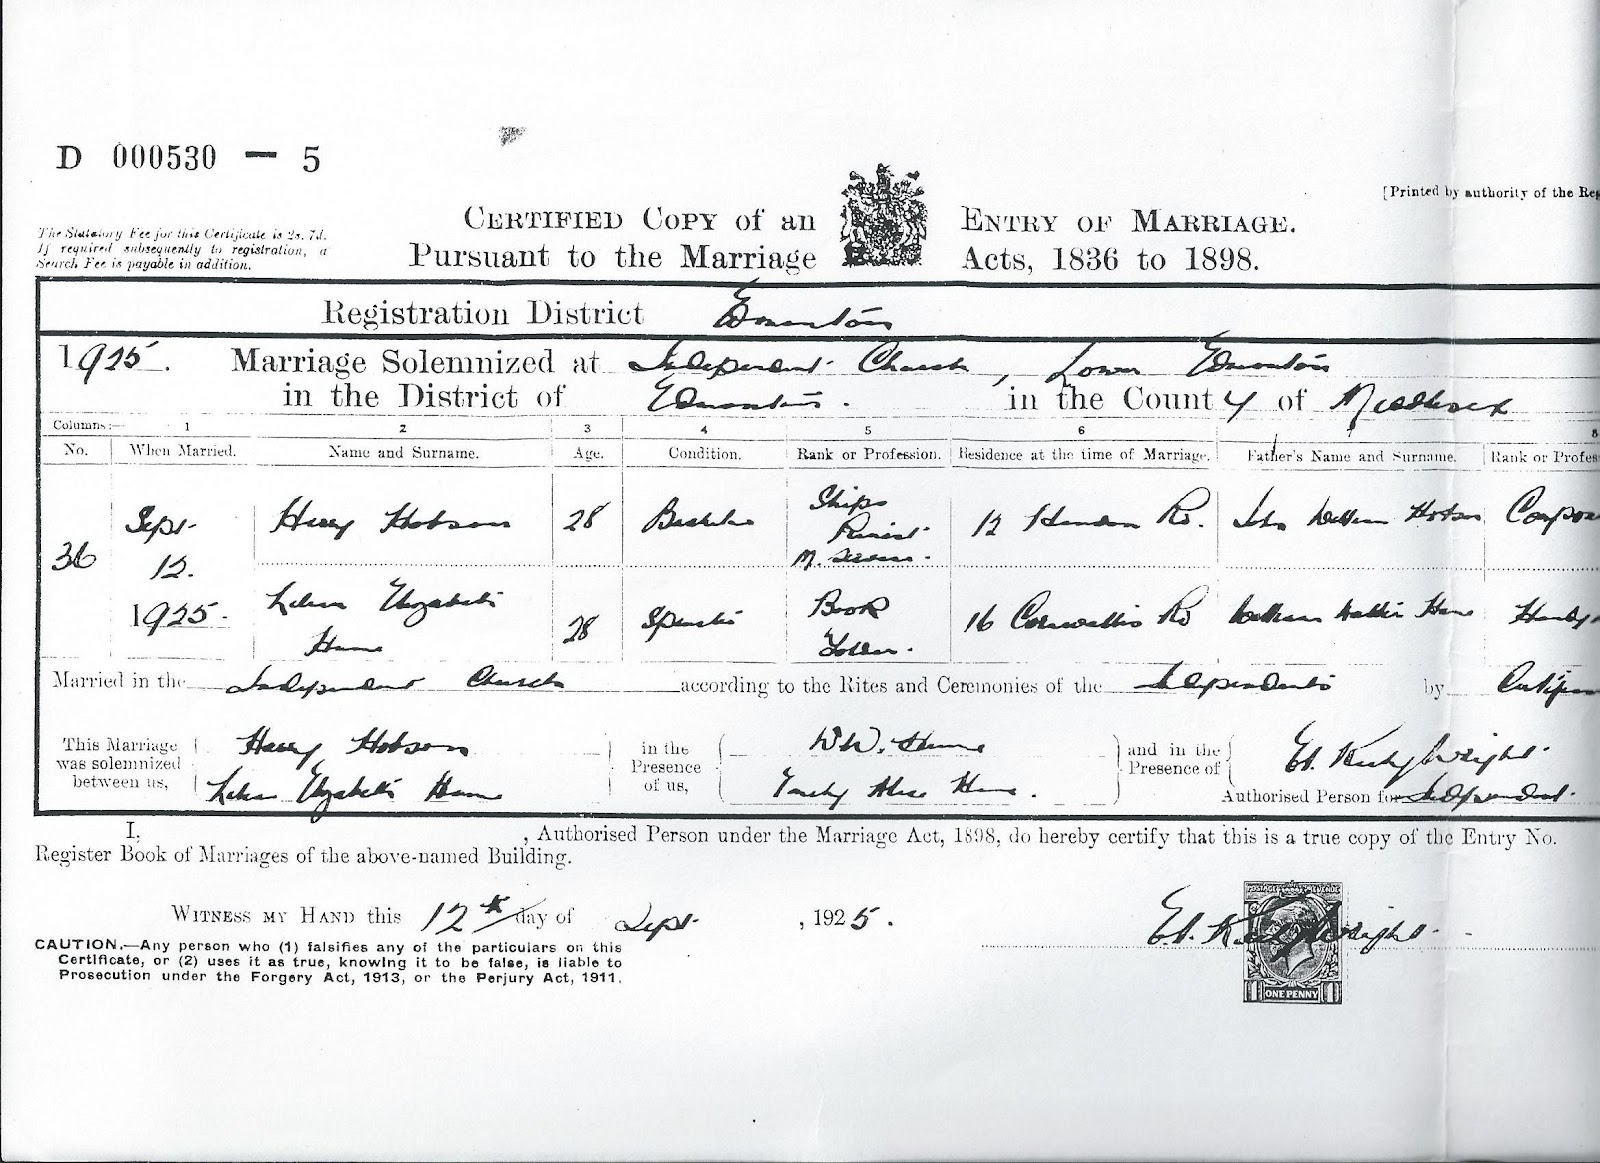 D 000530 — 5
[Printed by authority of the Reg
The Statutory Fee for this Certificate is 2s. 7d.
If required subsequently to registration, a
Search Fee is payable in addition.
CERTIFIED COPY of an ENTRY OF MARRIAGE.
Pursuant to the Marriage Acts, 1836 to 1898.
Registration District Edmonton
1925. Marriage Solemnized at Independent Church, Lower Edmonton
in the District of Edmonton. in the County of Middlesex
Columns:— 1 2 3 4 5 6 7 8
No. When Married. Name and Surname. Age. Condition. Rank or Profession. Residence at the time of Marriage. Father's Name and Surname. Rank or Profes
36 Sept 12. 1925.
Harry Hobson 28 Bachelor Ships M. 12 Rd. John William Hobson Compos
Elizabeth Hume 28 Spinster Book Folder. 16 Cornwallis Rd William Walter Hume
Married in the Independent Church according to the Rites and Ceremonies of the Independents by Certifica
This Marriage was solemnized between us, Harry Hobson
Elizabeth Hume
in the Presence of us, W.W. Hume
Alice Hume.
and in the Presence of Wright
Authorised Person for Independent.
I, , Authorised Person under the Marriage Act, 1898, do hereby certify that this is a true copy of the Entry No.
Register Book of Marriages of the above-named Building.
WITNESS MY HAND this 12th day of Sept , 1925.
Wright
CAUTION.—Any person who (1) falsifies any of the particulars on this
Certificate, or (2) uses it as true, knowing it to be false, is liable to
Prosecution under the Forgery Act, 1913, or the Perjury Act, 1911.
POSTAGE REVENUE
1 ONE PENNY 1